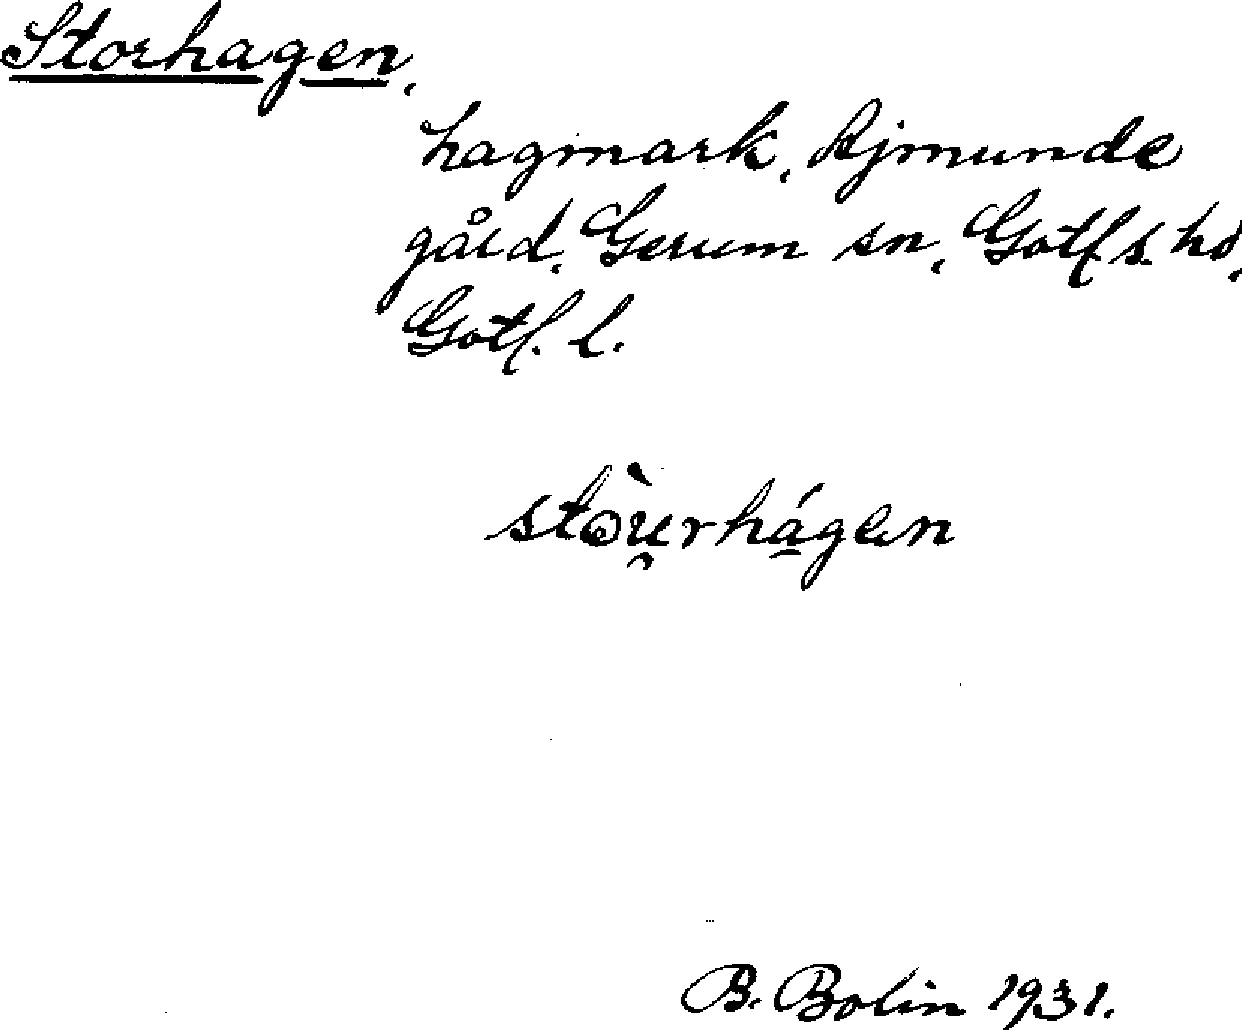 Storhagen,
hagmark, Rjmunde
gård, Gerum sn, Gotl s. hd,
Gotl. l.
stòu̯rhá̱gen
B. Bolin 1931.